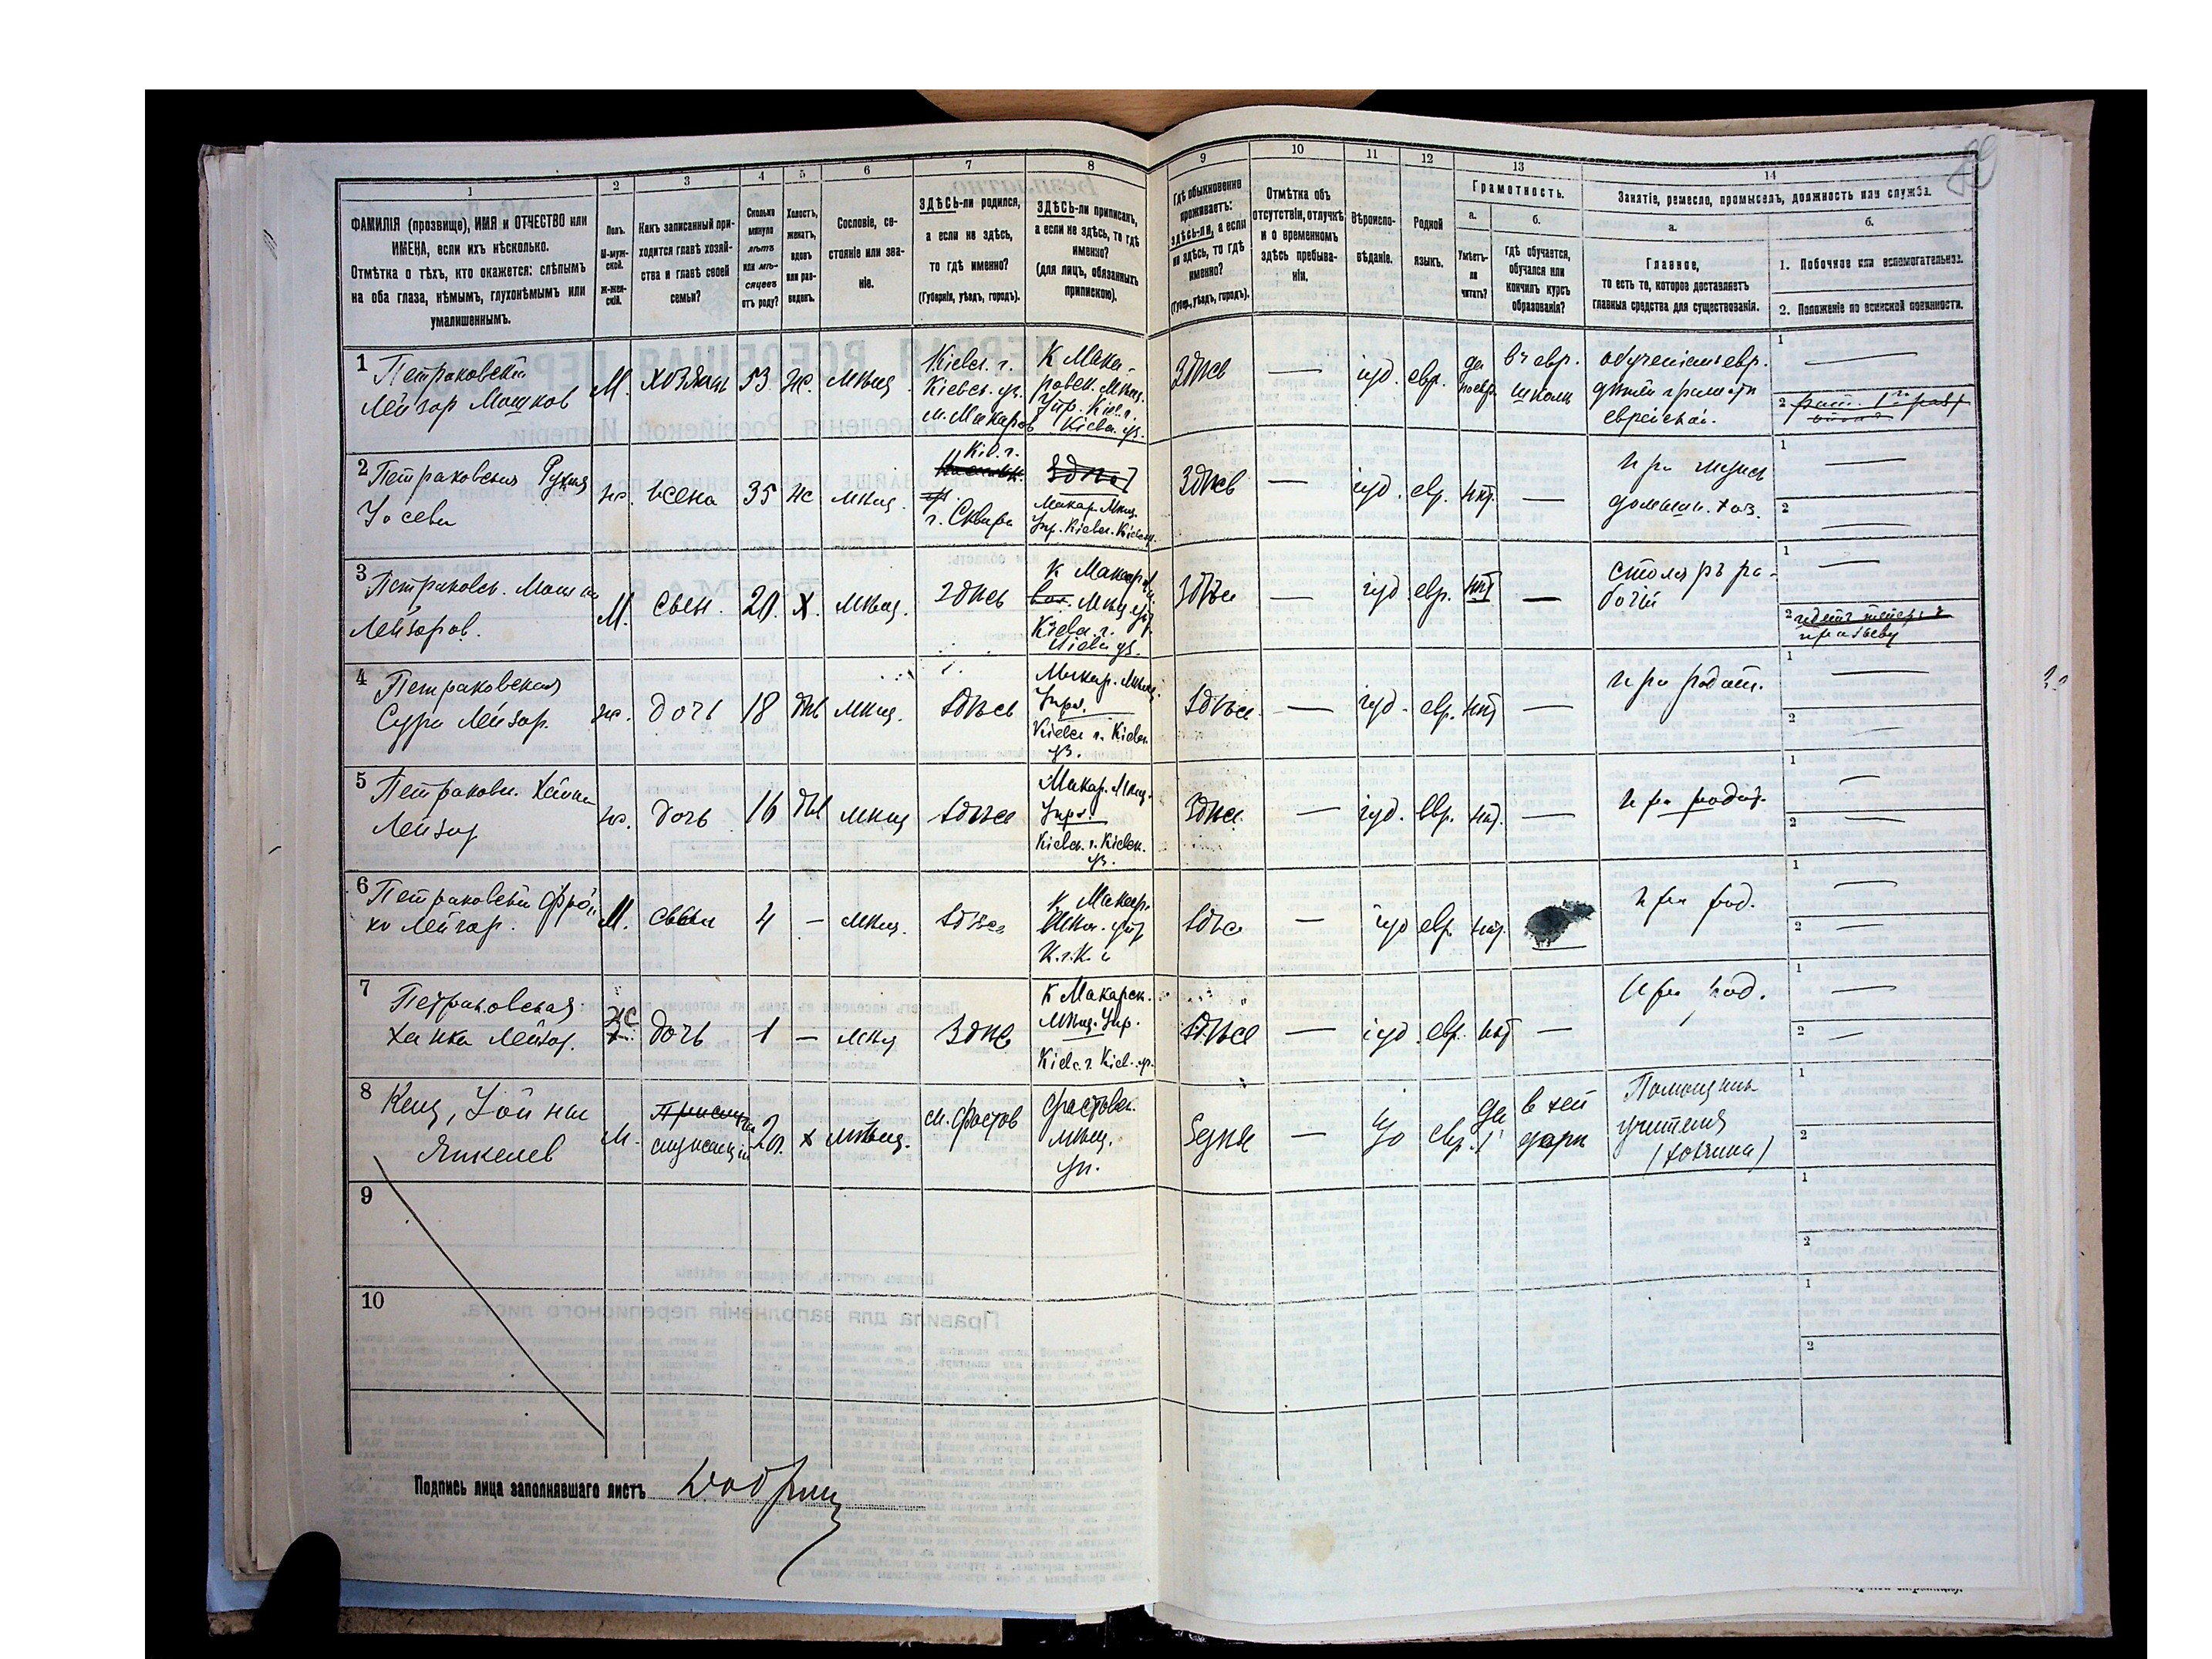 1 2 3 4 5 6 7 8 9 10 11 12 13 14
ФАМИЛІЯ (прозвище), ИМЯ и ОТЧЕСТВО или
ИМЕНА, если ихъ нѣсколько.
Отмѣтка о тѣхъ, кто окажется: слѣпымъ
на оба глаза, нѣмымъ, глухонѣмымъ или
умалишеннымъ.
Полъ.
М-муж-
ской.
Ж-жен-
скій.
Какъ записанный при-
ходится главѣ хозяй-
ства и главѣ своей
семьи?
Сколько
минуло
лѣтъ
или мѣ-
сяцевъ
отъ роду?
Холостъ,
женатъ,
вдовъ
или раз-
веденъ.
Сословіе, со-
стояніе или зва-
ніе.
ЗДѢСЬ-ли родился,
а если не здѣсь,
то гдѣ именно?
(Губернія, уѣздъ, городъ).
ЗДѢСЬ-ли приписанъ,
а если не здѣсь, то гдѣ
именно?
(для лицъ, обязанныхъ
припискою).
Гдѣ обыкновенно
проживаетъ:
здѣсь-ли, а если
не здѣсь, то гдѣ
именно?
(Губерн., уѣздъ, городъ).
Отмѣтка объ
отсутствіи, отлучкѣ
и о временномъ
здѣсь пребыва-
ніи.
Вѣроиспо-
вѣданіе.
Родной
языкъ.
Грамотность.
а.
Умѣетъ-
ли
читать?
б.
гдѣ обучается,
обучался или
кончилъ курсъ
образованія?
Занятіе, ремесло, промыселъ, должность или служба.
а.
Главное,
то есть то, которое доставляетъ
главныя средства для существованія.
б.
1. Побочное или вспомогательное.
2. Положеніе по воинской повинности.
1 Петраковскій
Лейзор Мошков
М. хозяин 53 ж. мѣщ.
Кіевс. г.
Кіевск. уѣ.
м. Макаров
К Мака-
ровск. Мѣщ.
Упр. Кіев. г.
Кіевск. уѣ.
Здѣсь — іуд. евр.
да
по евр.
въ евр.
школѣ
обученіемъ евр.
дѣтей грамотѣ
еврейской.
2 Петраковская Рухля
Іосева
ж. жена 35 ж мѣщ.
Кіев. г.
г. Сквира
Здѣсь
Макар. Мѣщ.
Упр. Кіевск. Кіевск.
Здѣсь — іуд. евр. нѣт —
при мужѣ
домашн. хоз.
3 Петраковск. Мошко
Лейзоров.
М. сын. 20. Х. мѣщ. здѣсь
К Макаров
Мѣщ. упр.
Кіевс. г.
Кіевс. уѣ.
Здѣсь — іуд. евр. нѣт —
столяръ ра-
бочій
4 Петраковская
Сура Лейзор.
ж. дочь 18 дѣв мѣщ. здѣсь
Макар. Мѣщ.
Упр.
Кіевс г. Кіевск.
уѣ.
здѣсь — іуд. евр. нѣт —
при родит.
5 Петраковск. Хайка
Лейзор
ж. дочь 16 дѣв мѣщ здѣсь
Макар. Мѣщ.
Упр.
Кіевск. г. Кіевск.
уѣ.
Здѣсь — іуд. евр. нѣт. —
при родит.
6 Петраковскій Фрой
ко Лейзор.
М. сын 4 — мѣщ. здѣсь
к Макар.
К. г. К. у
здѣсь — іуд евр. нѣт. —
при род.
7 Петраковская
Ханка Лейзор.
Ж дочь 1 — мѣщ Здѣс
К Макаров.
мѣщ. Упр.
Кіевс. г Кіев. уѣ.
здѣсь — іуд. евр. нѣт —
при род.
8 Кац, Уойны
Янкелев
М. 20. х мѣщ. м. Фастов
Фастовск.
мѣщ.
уп.
— евр.
да
в хей
дари
Помощник
учителя
(хозяина)
9
10
Подпись лица заполнявшаго листъ